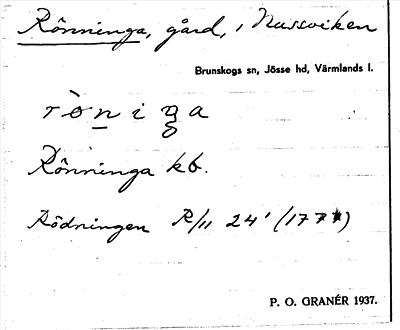 Rönninga, gård, i Nussviken
Brunskogs sn, Jösse hd, Värmlands l.
rò̤niŋa
Rönninga kb.
Rödningen R/11 24' (177)
P. O. GRANÉR 1937.